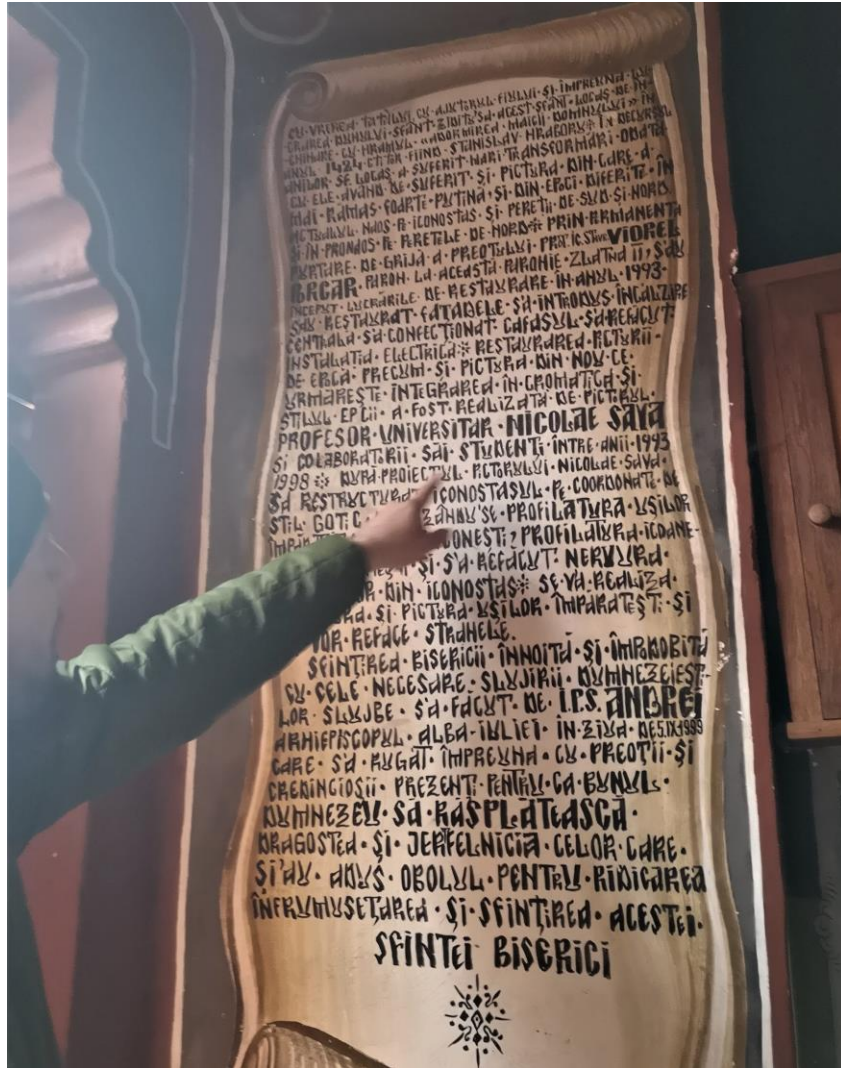 CU VREREA TATĂLUI CU AJUTORUL FIULUI ȘI ÎMPREUNĂ LU-
CRAREA DUHULUI SFÂNT ZIDITU'SA ACEST SFÂNT LOCAȘ DE ÎN-
CHINARE CU HRAMUL «ADORMIREA MAICII DOMNULUI» ÎN
ANUL 1424 CTITOR FIIND STANISLAV HRABORX ÎN DECURSUL
ANILOR SF. LOCAȘ A SUFERIT MARI TRANSFORMĂRI ODATĂ
CU ELE AVÂND DE SUFERIT ȘI PICTURA DIN CARE A
MAI RĂMAS FOARTE PUȚINĂ ȘI DIN EPOCI DIFERITE ÎN
ACTUALUL NAOS PE ICONOSTAS ȘI PEREȚII DE SUD ȘI NORD
ȘI ÎN PRONAOS PE PERETELE DE NORD※ PRIN PERMANENTA
PURTARE DE GRIJĂ A PREOTULUI PR. IC. STAVR VIOREL
PAROH LA ACEASTĂ PAROHIE ZLATNA II, S'AU
ÎNCEPUT LUCRĂRILE DE RESTAURARE ÎN ANUL 1993·
SAU RESTAURAT FAȚADELE S'A INTRODUS ÎNCĂLZIRE
CENTRALĂ S'A CONFECȚIONAT CAFASUL S'A REFĂCUT
INSTALAȚIA ELECTRICĂ※ RESTAURAREA PICTURII·
DE EPOCĂ PRECUM ȘI PICTURA DIN NOU CE·
URMĂREȘTE INTEGRAREA ÎN CROMATICA ȘI·
STILUL EPOCII A FOST REALIZATĂ DE PICTORUL·
PROFESOR·UNIVERSITAR·NICOLAE SAVA
ȘI COLABORATORII SĂI STUDENȚI ÎNTRE ANII 1993
1998※ DUPĂ PROIECTUL PICTORULUI NICOLAE SAVA·
S'A RESTRUCTURAT ICONOSTASUL PE COORDONATE DE
STIL GOTIC PROFILATURA UȘILOR
PROFILATURA ICOANE-
ȘI S'A REFĂCUT NERVURA·
DIN ICONOSTAS※ SE VA REALIZA·
ȘI PICTURA UȘILOR ÎMPĂRĂTEȘTI ȘI
VOR REFACE STRANELE.
SFINȚIREA BISERICII ÎNNOITĂ ȘI ÎMPODOBITĂ
CU CELE NECESARE SLUJIRII DUMNEZEIEȘTI-
LOR SLUJBE S'A FĂCUT DE I.P.S. ANDREI
ARHIEPISCOPUL ALBA-IULIEI ÎN ZIUA DE 5.IX.1999
CARE S'A RUGAT ÎMPREUNĂ CU PREOȚII ȘI
CREDINCIOȘII PREZENȚI PENTRU CA BUNUL·
DUMNEZEU SĂ RĂSPLĂTEASCĂ·
DRAGOSTEA ȘI JERTFELNICIA CELOR CARE·
ȘI'AU ADUS OBOLUL PENTRU RIDICAREA
ÎNFRUMUSEȚAREA ȘI SFINȚIREA ACESTEI·
SFINTEI BISERICI